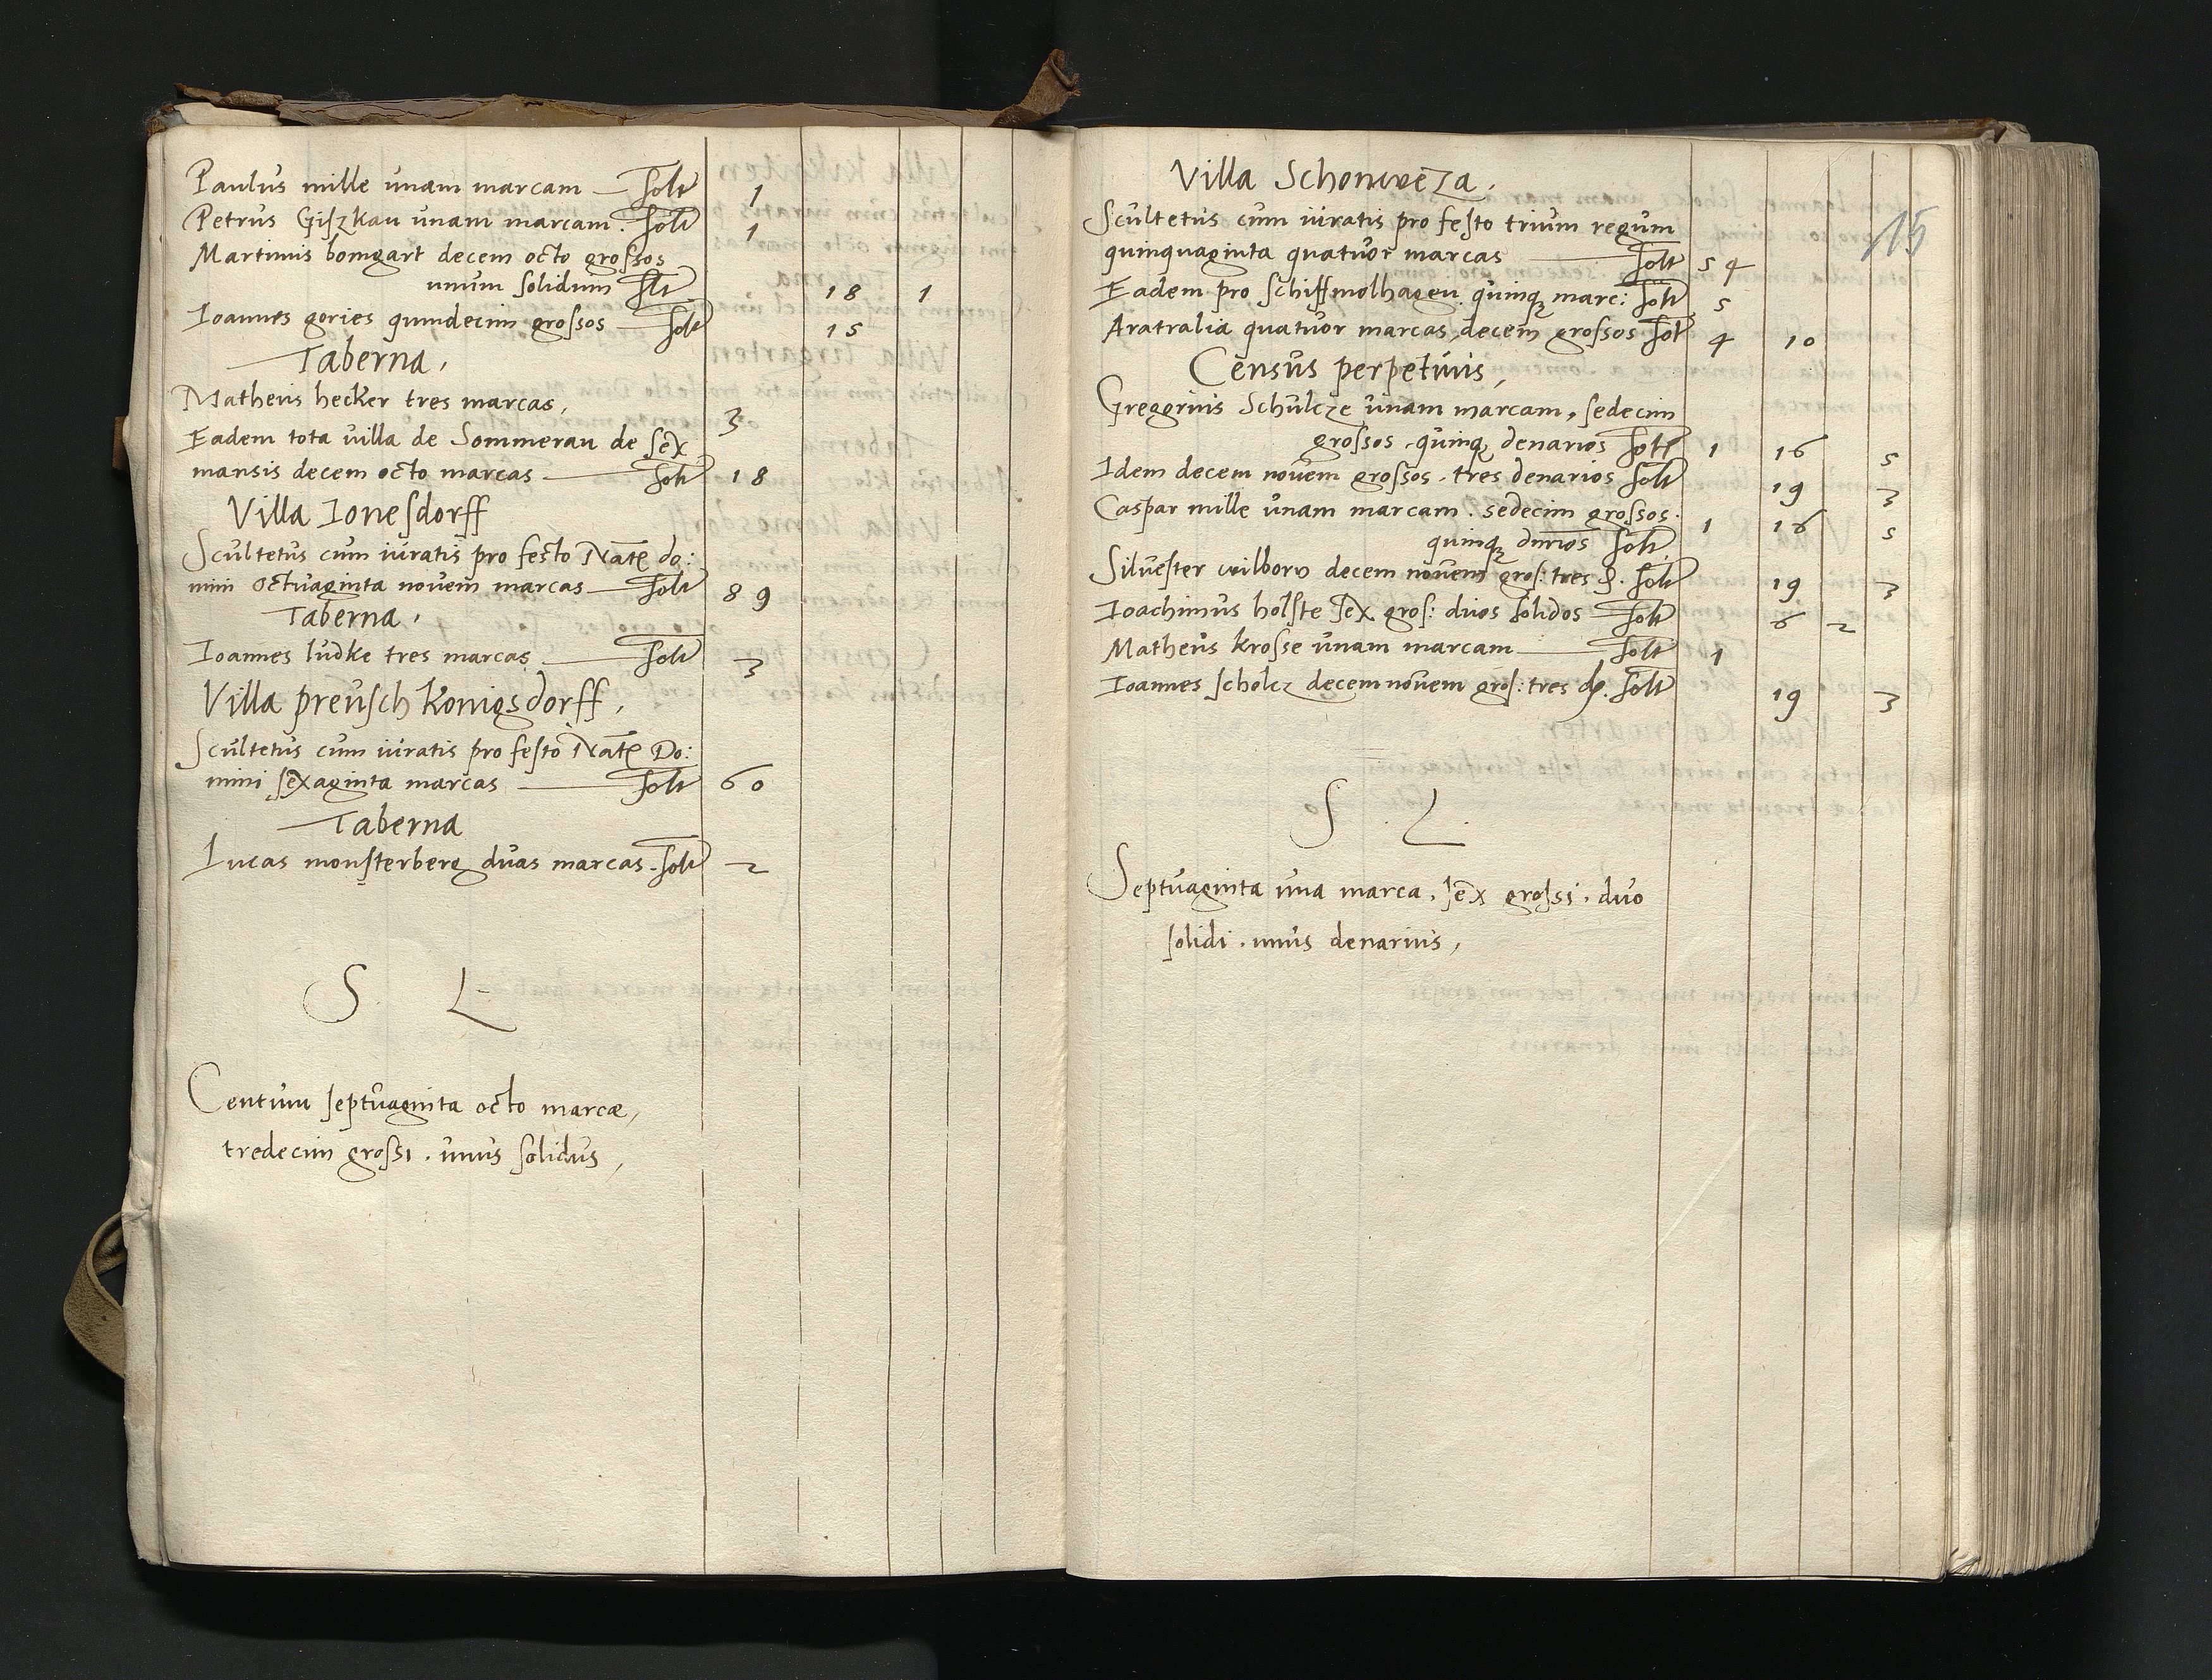 Paulus mille unam marcam Solt 1
Petrus Giszkau unam marcam. Solt 1
Martinus bomgart decem octo grossos
unum solidum Slt 18 1
Ioannes gories quindecim grossos Solt 15
Taberna,
Matheus hecker tres marcas, 3
Eadem tota villa de Sommerau de sex
mansis decem octo marcas Solt 18
Villa Ionesdorff
Scultetus cum iuratis pro festo Nate do:
mini octuaginta novem marcas Solt 89
Taberna,
Ioannes ludke tres marcas Solt 3
Villa preusch Konigsdorff,
Scultetus cum iuratis pro festo Nate Do:
mini sexaginta marcas Solt 60
Taberna
Lucas monsterberg duas marcas. Solt 2
S L
Centum septuaginta octo marcæ,
tredecim grossi. unus solidus,
Villa Schonweza.
Scultetus cum iuratis pro festo trium regum 15
quinquaginta quatuor marcas Solt 54
Eadem pro Schiffmolhagen quinq marc: Solt 5
Aratralia quatuor marcas, decem grossos Solt 4 10
Census perpetuus,
Gregorius Schulcze unam marcam, sedecim
grossos, quinq denarios Solt 1 16 5
Idem decem novem grossos. tres denarios Solt 19 3
Caspar mille unam marcam. sedecim grossos. 1 16 5
quinq dnrios Solt
Silvester wilborn decem novem gros: tres d. Solt 19 3
Ioachimus holste sex gros: duos solidos Solt 6 2
Matheus krosse unam marcam Solt 1
Ioannes scholcz decem novem gros: tres d. Solt 19 3
S. L.
Septuaginta una marca, sex grossi. duo
solidi. unus denarius,